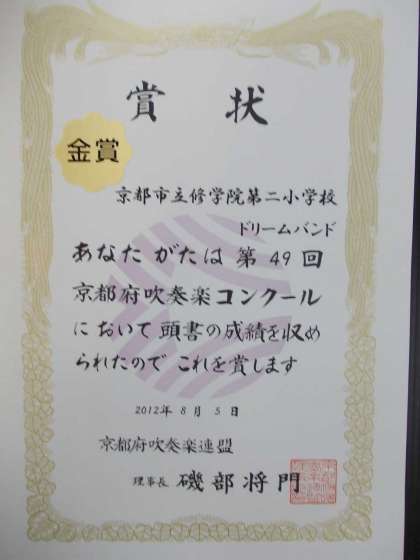 賞状
金賞
京都市立修学院第二小学校
ドリームバンド
あなたがたは第49回
京都府吹奏楽コンクール
において頭書の成績を収め
られたのでこれを賞します
2012年8月5日
京都府吹奏楽連盟
理事長 磯部将門